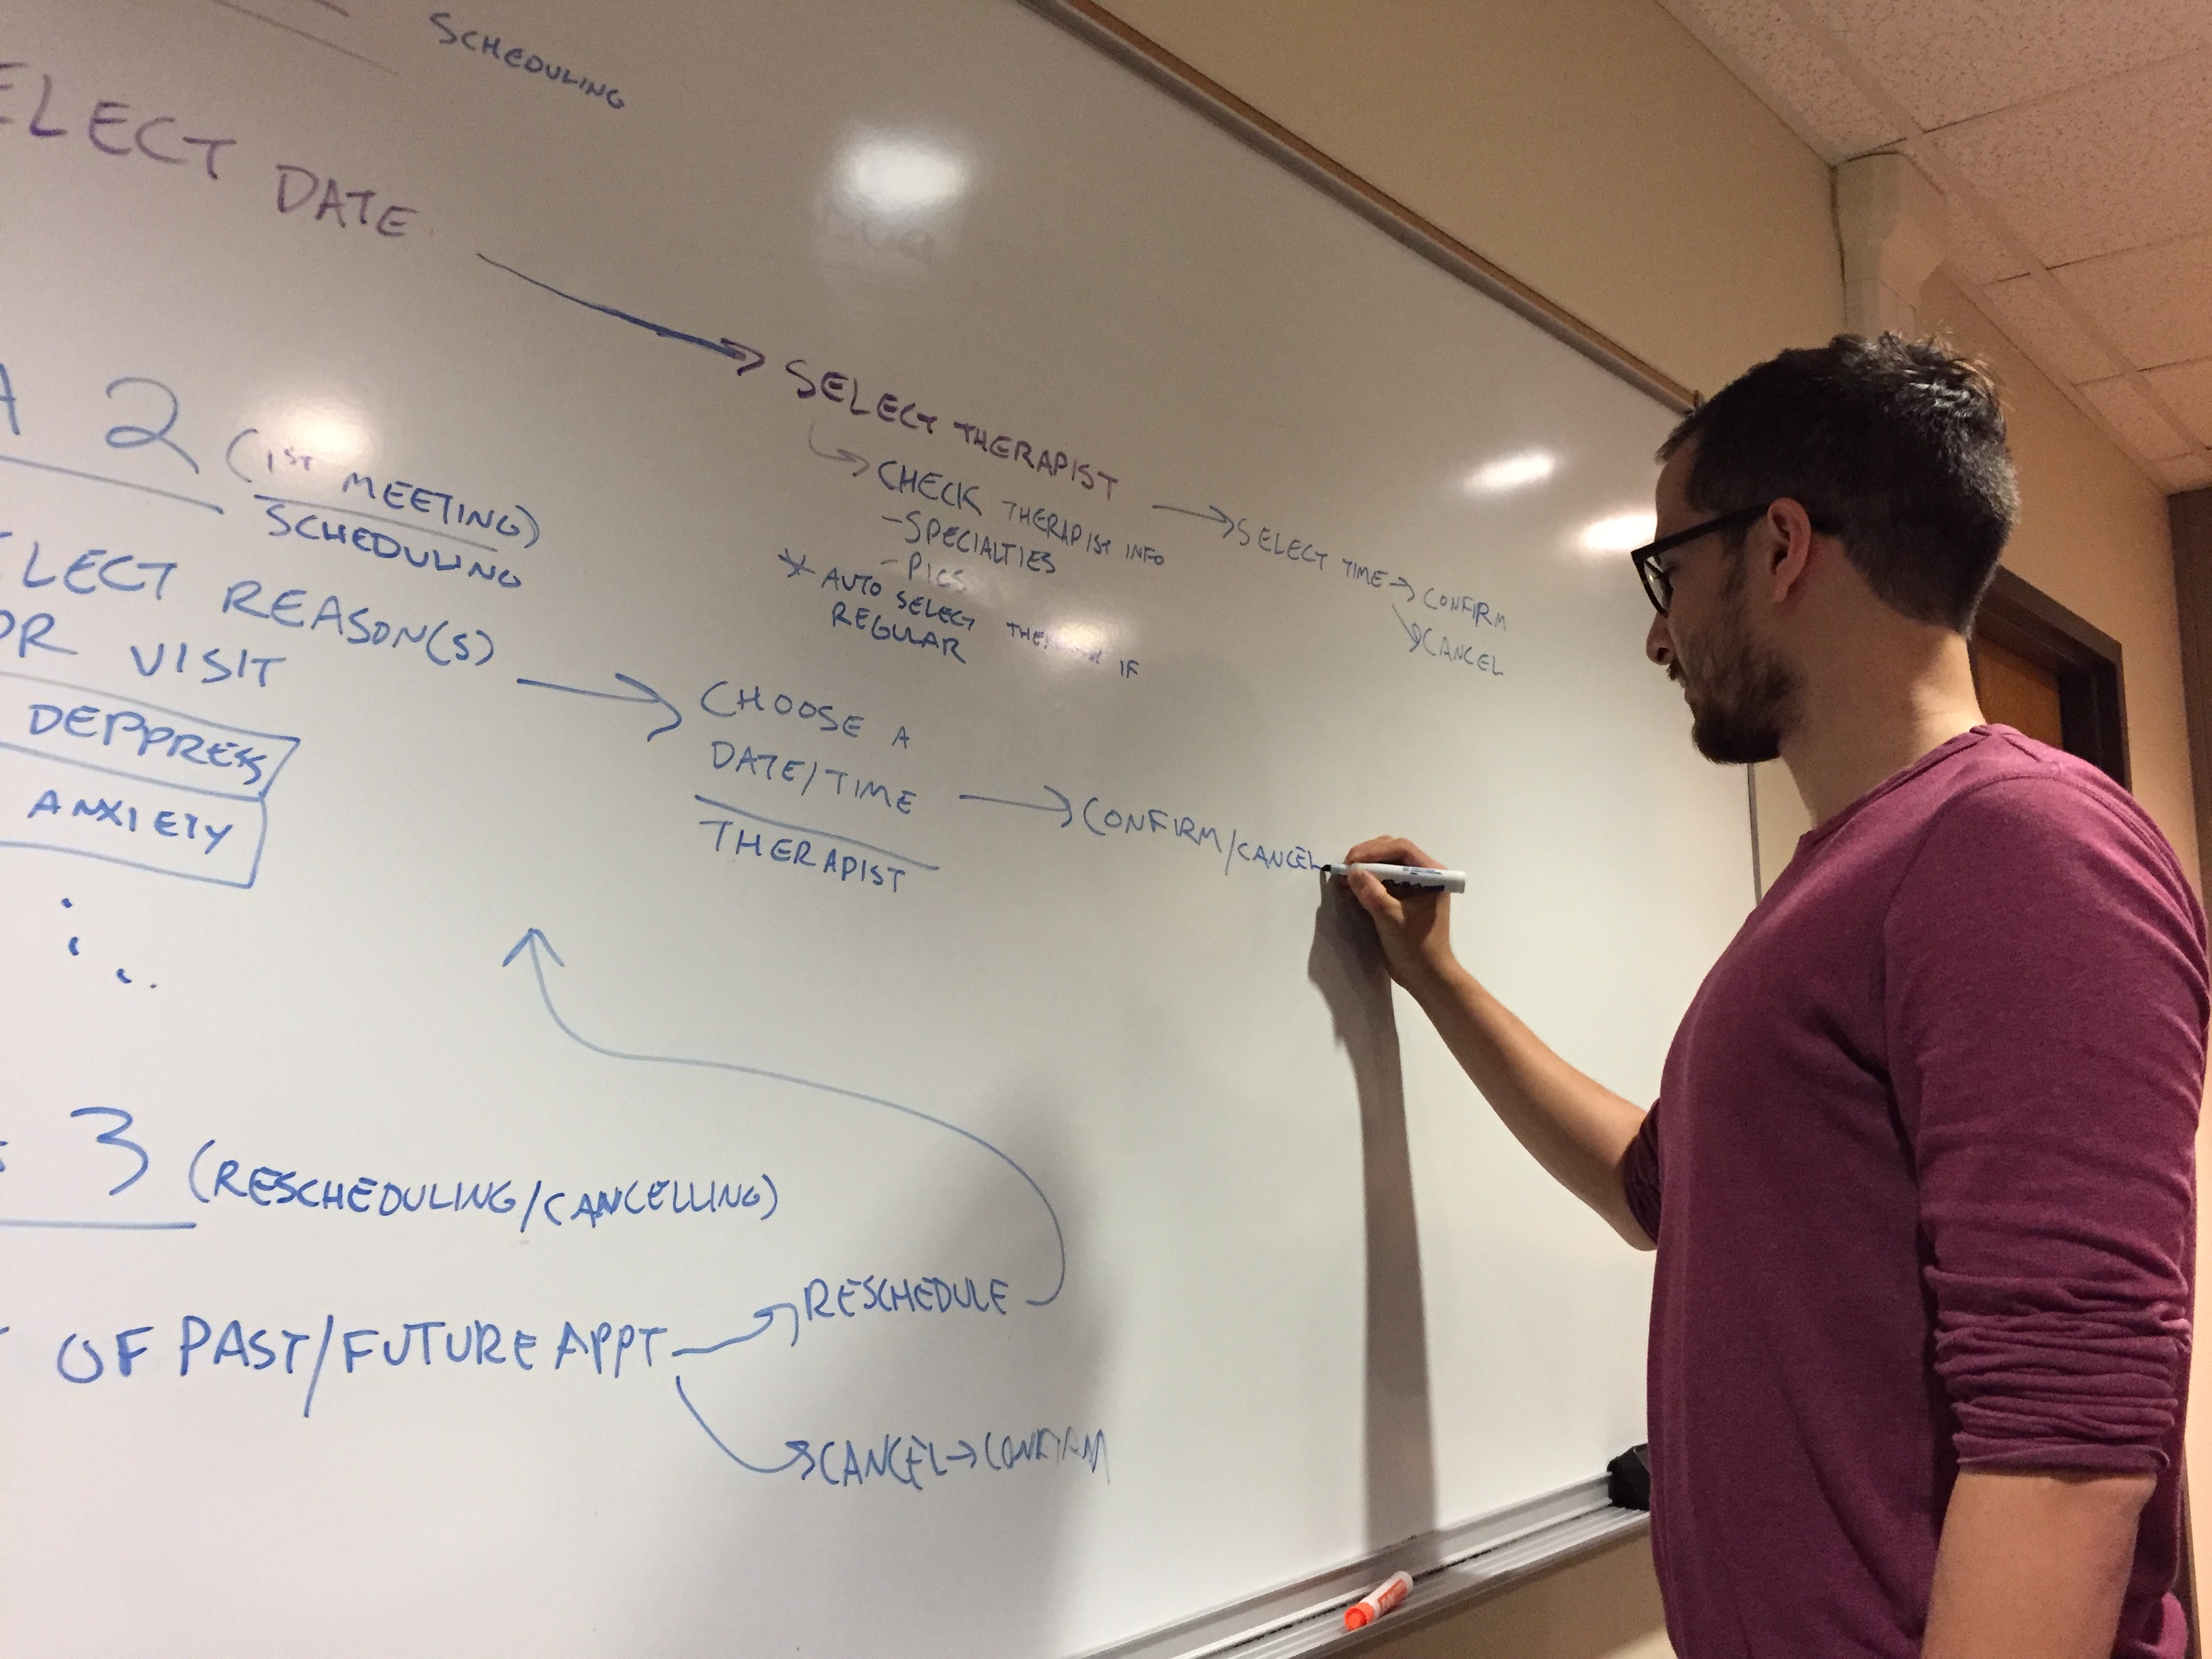 SCHEDULING
ELECT DATE
SELECT THERAPIST
CHECK THERAPIST INFO
- SPECIALTIES
- PICS
* AUTO SELECT IF
REGULAR
SELECT TIME
CONFIRM
CANCEL
A 2 (1ST MEETING)
SCHEDULING
ELECT REASON(S)
OR VISIT
DEPPRESS
ANXIETY
CHOOSE A
DATE/TIME
THERAPIST
CONFIRM/CANCEL
3 (RESCHEDULING/CANCELLING)
OF PAST/FUTURE APPT
RESCHEDULE
CANCEL → CONFIRM